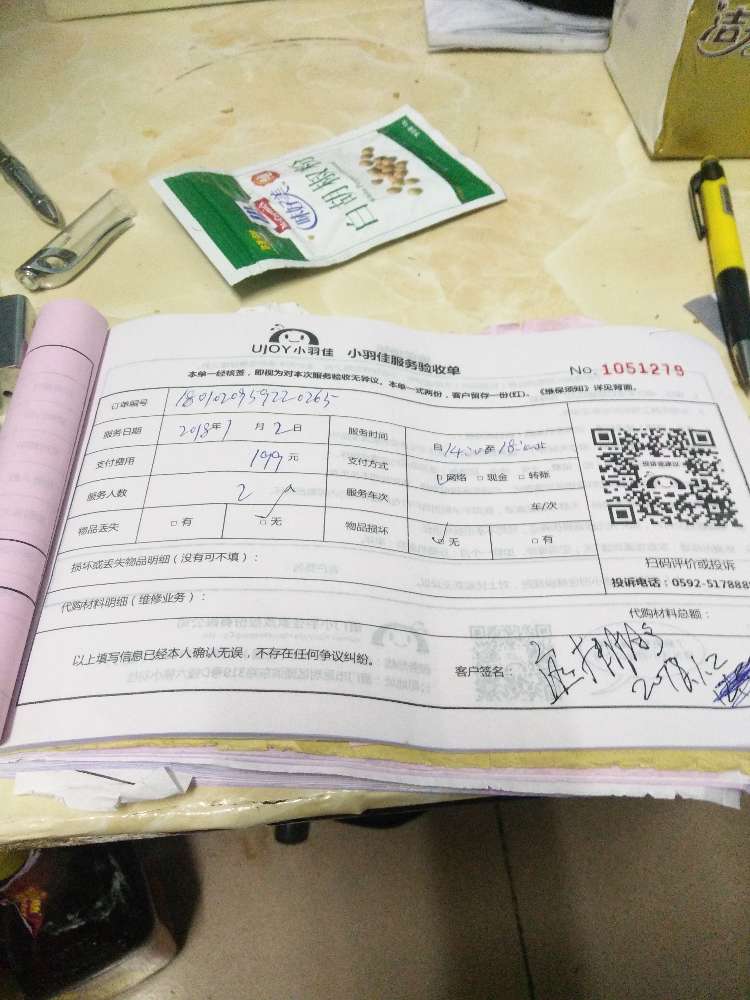 洁
白胡椒粉
味好美
McCormick
UJOY小羽佳 小羽佳服务验收单
No. 1051279
本单一经核签，即视为对本次服务验收无异议。本单一式两份，客户留存一份(红)。《维保须知》详见背面。
订单编号 1801020959220265
服务日期 2018年1月2日 服务时间 自14:00至18:00
支付费用 199元 支付方式 □网络 □现金 □转账
服务人数 2人 服务车次 车/次
物品丢失 □有 □无 物品损坏 □无 □有
损坏或丢失物品明细（没有可不填）：
扫码评价或投诉
投诉电话：0592-517888
代购材料明细（维修业务）：
代购材料总额：
以上填写信息已经本人确认无误，不存在任何争议纠纷。
客户签名：
2018.1.2